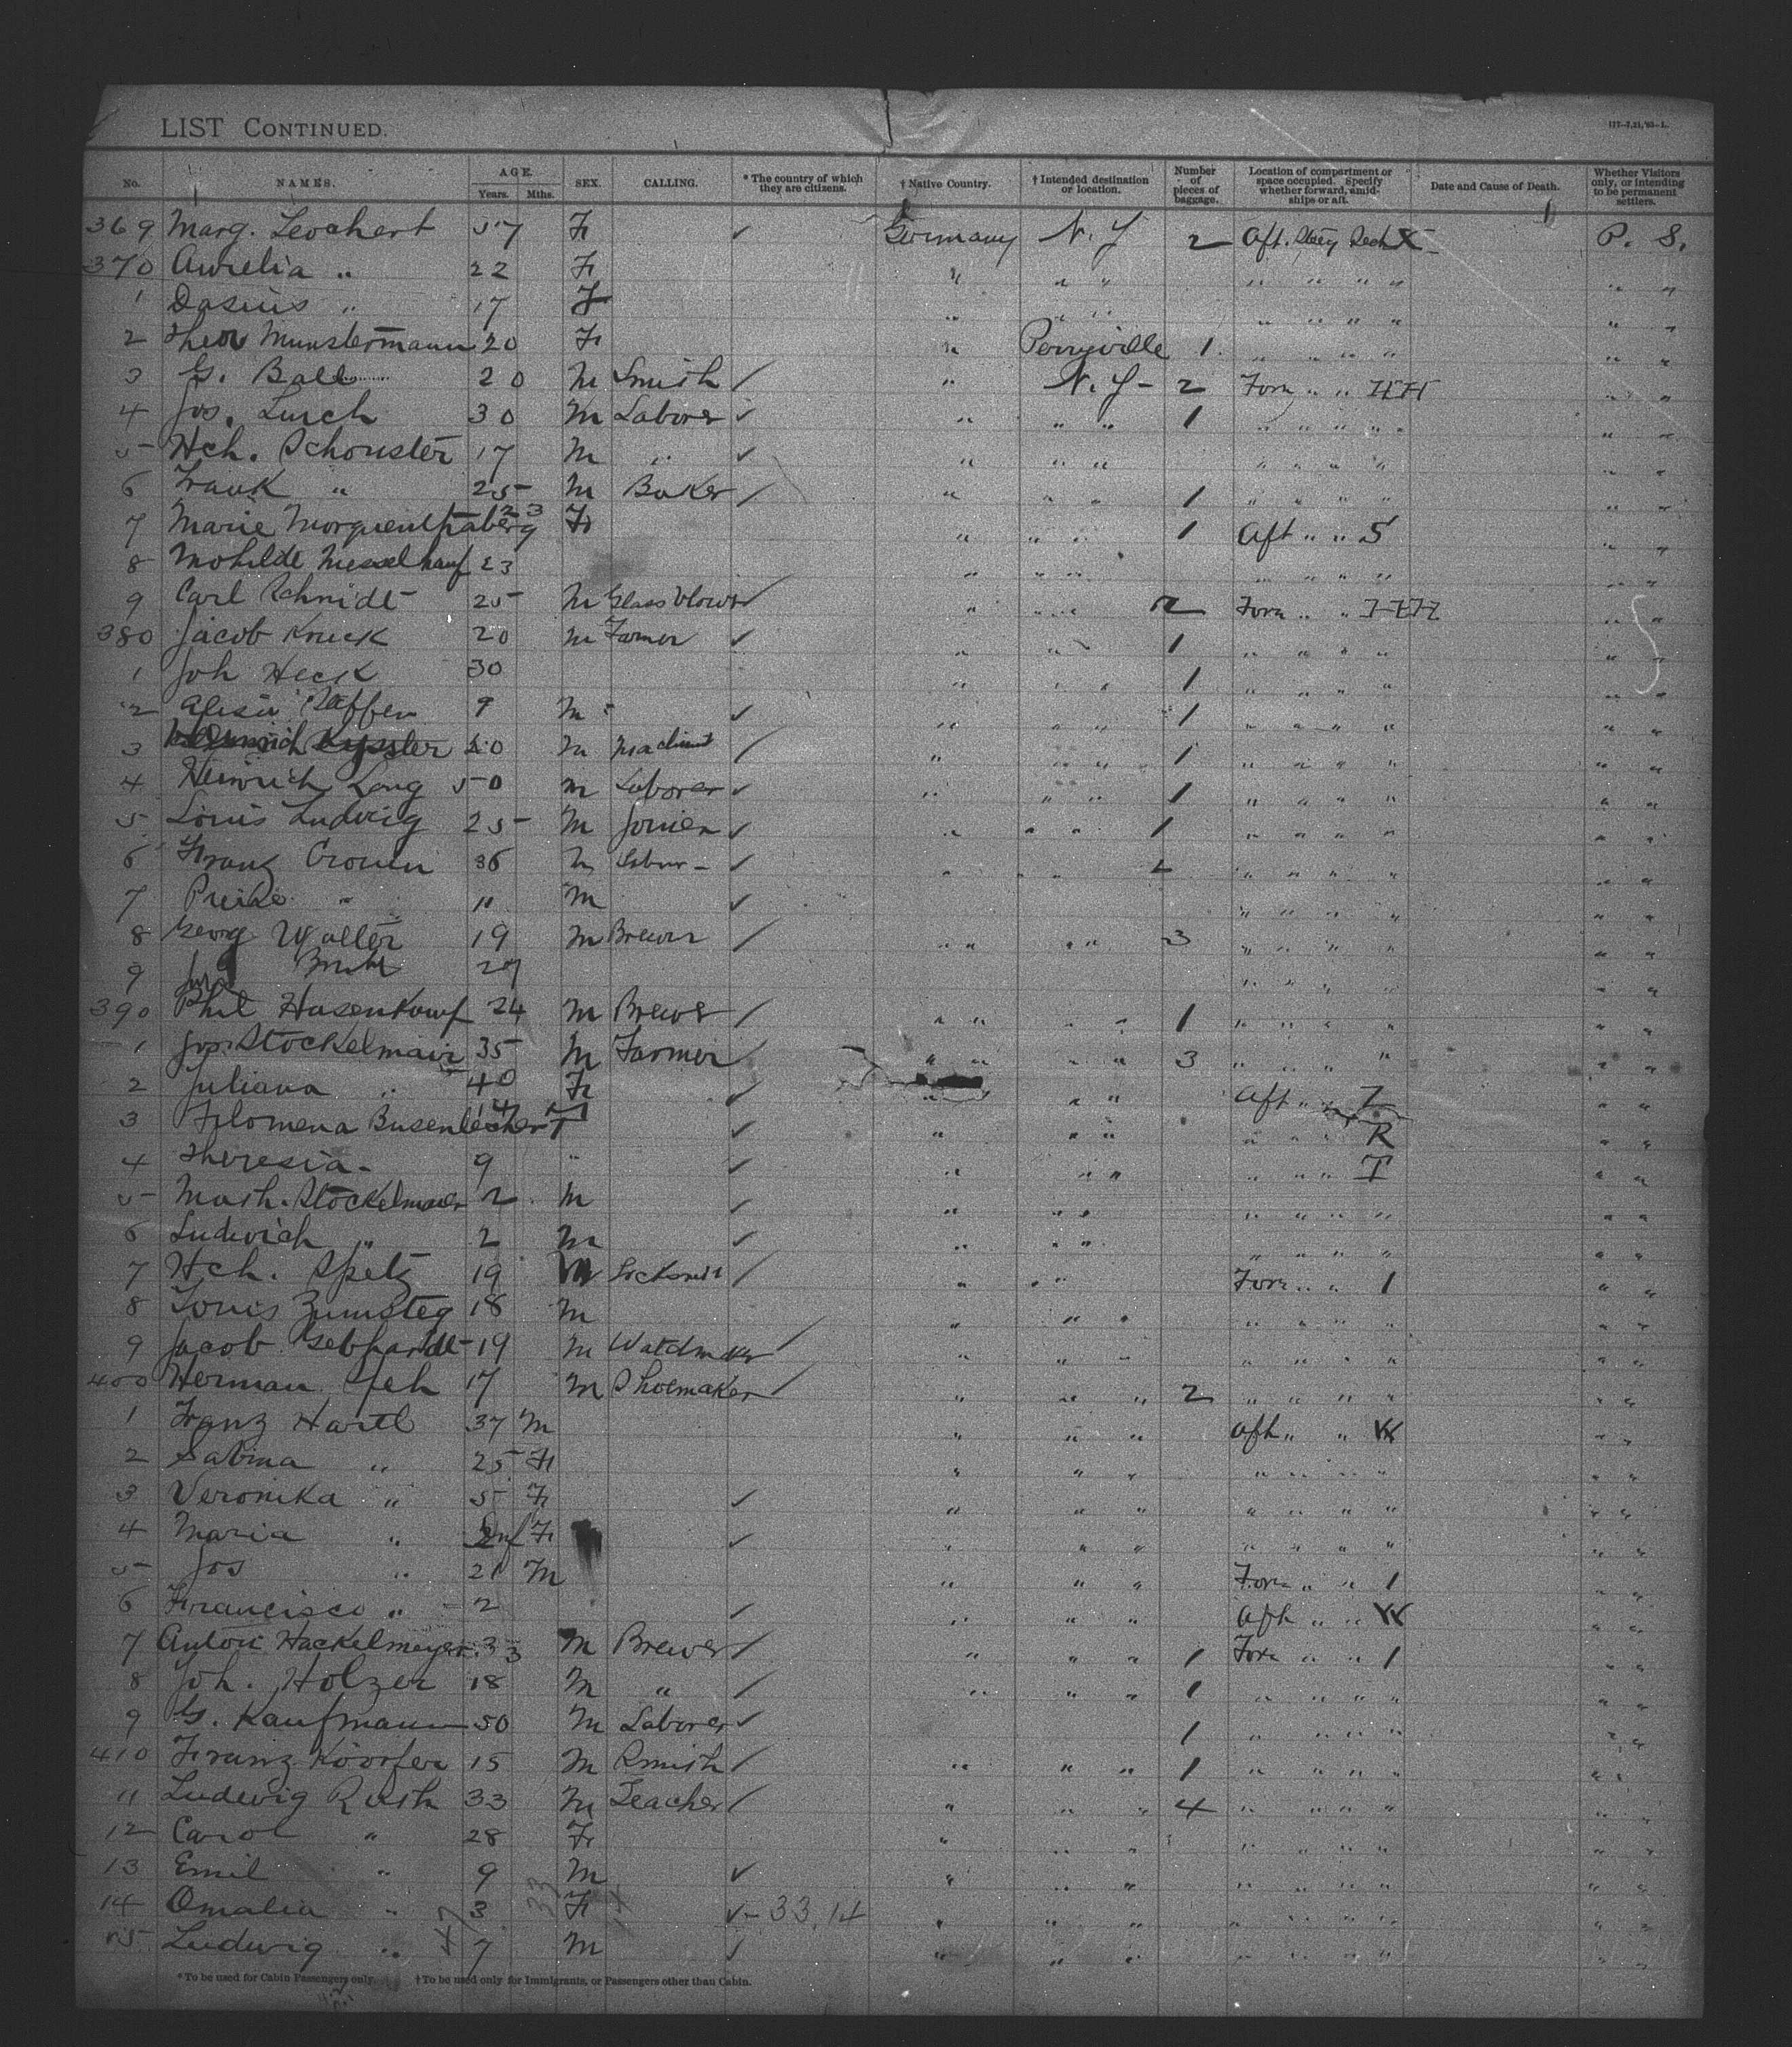 LIST CONTINUED.
No. NAMES. AGE. Years. Mths. SEX. CALLING. * The country of which they are citizens. † Native Country. † Intended destination or location. Number of pieces of baggage. Location of compartment or space occupied. Specify whether forward, amidships or aft. Date and Cause of Death. Whether Visitors only, or intending to be permanent settlers.
369 Marg. Leochert 57 F ✓ Germany N. Y 2 Aft. P. S.
370 Aurelia " 22 F " " " " " " " " "
1 Dasius " 17 F " " " " " " " " "
2 Theo Munstermann 20 F " Perryville 1. " " " " " "
3 G. Ball 20 M Smith / " N. Y - 2 Forw " " HH " "
4 Jos. Lurch 30 M Laborer ✓ " " " 1 " " " " " "
5 Hch. Schouster 17 M " ✓ " " " " " " " " "
6 Frank " 25 M Baker / " " " 1 " " " " " "
7 Marie 23 F " " " 1 Aft " " S " "
8 Mohilde 23 " " " " " " " " "
9 Carl Schmidt 25 M Glass blower / " " " 2 Forw " " " "
380 Jacob Kruck 20 M Farmer ✓ " " " 1 " " " " " "
1 Joh Heck 30 " " " 1 " " " " " "
2 9 M ✓ " " " 1 " " " " " "
3 20 M Machinist / " " " 1 " " " " " "
4 Heinrich Lang 50 M Laborer ✓ " " " 1 " " " " " "
5 Louis Ludwig 25 M Joiner ✓ " " " 1 " " " " " "
6 Franz Cronin 36 M Labor - ✓ " " " " " " " " "
7 " 11 M ✓ " " " " " "
8 Georg Walter 19 M Brewer / " " " " 3 " " " " " "
9 27 " " " " " "
390 Phil Hasenkamf 24 M Brewer / " " " " 1 " " " " " "
1 Jos. Stockelmair 35 M Farmer / " " " " 3 " " " " " "
2 Juliana " 40 F ✓ " " " Aft " " Z " "
3 Filomena Busenlechner 14 F ✓ " " " " " " R " "
4 Theresia - 9 " ✓ " " " " " " T " "
5 Math. Stockelmaier 2 M ✓ " " " " " " " " "
6 Ludwich " 2 M ✓ " " " " " " " " "
7 Hch. Spetz 19 M Locksmit / " " " Forw " " 1 " "
8 Louis Zumsteg 18 M " " " " " " " " "
9 Jacob Gebhardt 19 M Watchmaker / " " " " " " " " "
400 Herman Speh 17 M Shoemaker / " " " 2 " " " " " "
1 Franz Hartl 37 M " " " Aft " " W " "
2 Sabina " 25 F " " " " " " " " "
3 Veronika " 5 F ✓ " " " " " " " " "
4 Maria " Inf F ✓ " " " " " " " " "
5 Jos " 21 M " " " Forw " " 1 " "
6 Francisco " 2 ✓ " " " Aft " " W " "
7 Anton Hackelmeyer 33 M Brewer / " " " 1 Forw " " 1 " "
8 Joh. Holzer 18 M " / " " " 1 " " " " " "
9 G. Kaufmann 50 M Laborer ✓ 1 " " " " " "
410 Franz Körfer 15 M Smith / " " " 1 " " " " " "
11 Ludwig Rush 33 M Teacher / " " " 4 " " " " " "
12 Carol " 28 F " " " " " " " " "
13 Emil " 9 M ✓ " " " " " " " " "
14 Omalia " 3 F ✓ - 33.14 " " " " " " " " "
15 Ludwig " 7 M ✓ " " " " " " " " "
* To be used for Cabin Passengers only. † To be used only for Immigrants, or Passengers other than Cabin.